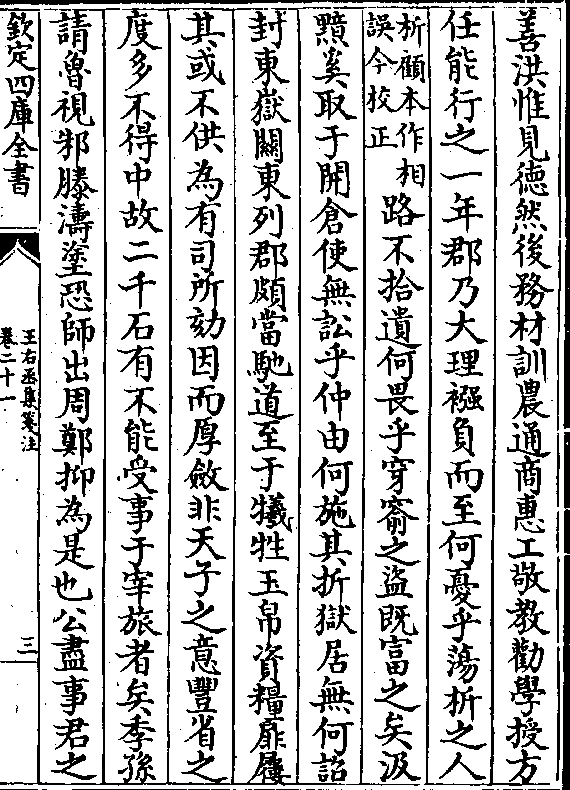 善洪惟見徳然後務材訓農通商惠工敬教勸學授方
任能行之一年郡乃大理襁負而至何憂乎蕩析之人
析顧本作相
誤今校正
路不拾遺何畏乎穿窬之盜既富之矣汲
黯奚取于開倉使無訟乎仲由何施其折獄居無何詔
封東嶽關東列郡頗當馳道至于犧牲玉帛資糧扉屨
其或不供為有司所劾因而厚斂非天子之意豐省之
度多不得中故二千石有不能受事于宰旅者矣季孫
請魯視邾滕濤塗恐師出周鄭抑為是也公盡事君之
欽定四庫全書
王右丞集箋注
卷二十一
三